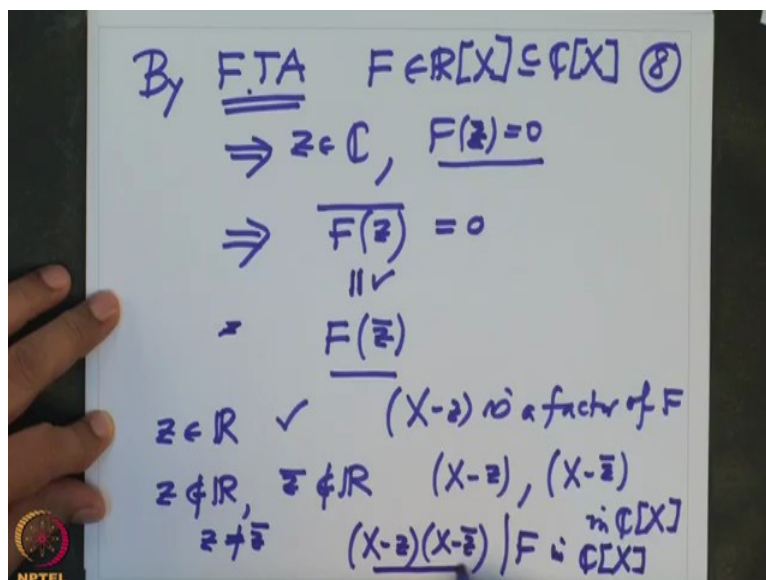 By F.TA F ∈ ℝ[X] ⊆ ℂ[X] ⑧
⇒ z ∈ ℂ, F(z) = 0
⇒ \overline{F(z)} = 0
|| ✓
= F(z̄)
z ∈ ℝ ✓ (X-z) is a factor of F
z ∉ ℝ, z̄ ∉ ℝ (X-z), (X-z̄)
in ℂ[X]
z ≠ z̄ (X-z)(X-z̄) | F in ℂ[X]
NPTEL